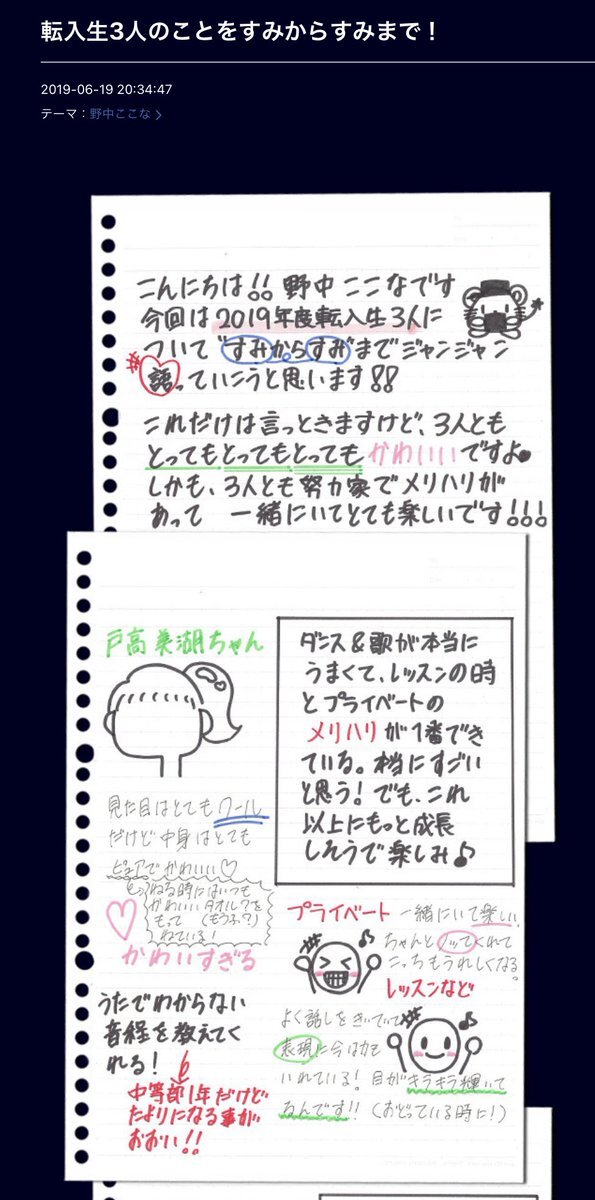 転入生3人のことをすみからすみまで！
2019-06-19 20:34:47
テーマ：野中ここな
こんにちは!! 野中 ここなです
今回は 2019年度転入生 3人に
ついて"すみからすみ"まで ジャンジャン
語っていこうと思います!!
これだけは言っときますけど、3人とも
とってもとってもとっても かわいいですよ
しかも、3人とも 努力家で メリハリが
あって 一緒にいてとても楽しいです!!!
戸高 美湖ちゃん
見た目はとても クール
だけど 中身 はとても
ピュアでかわいい♡
ねる時にはいつも
かわいいタオル？を
もって (もうふ?)
ねている!
かわいすぎる
うたでわからない
音程を教えてく
れる!
中等部1年だけど
たよりになる事が
おおい!!
ダンス&歌が本当に
うまくて、レッスンの時
と プライベートの
メリハリ が 1番でき
ている。本当にすごい
と思う! でも、これ
以上にもっと成長
しそうで楽しみ♪
プライベート 一緒にいて楽しい。
ちゃんとノッてくれて
こっちもうれしくなる。
レッスンなど
よく話しをきいていて
表現に今は力を
いれている! 目がキラキラ輝いて
るんです!! (おどっている時に!)